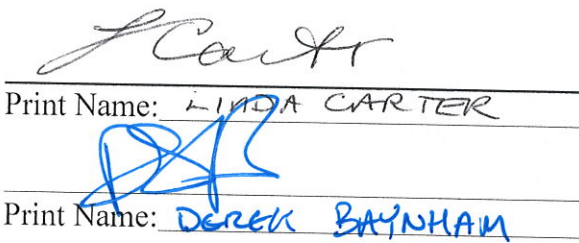 L Carter
Print Name: LINDA CARTER
Print Name: DEREK BAYNHAM